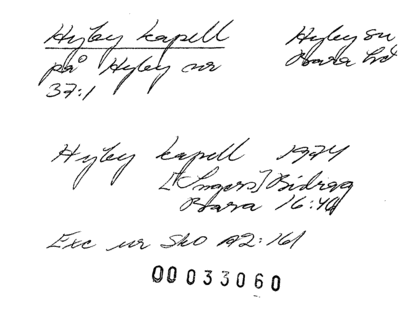 Hyby kapell
på Hyby nr
37:1
Hyby sn
Bara hd
Hyby kapell 1924
[Ingers] Bidrag
Bara 16:40
Exc ur SkO A2:161
00033060